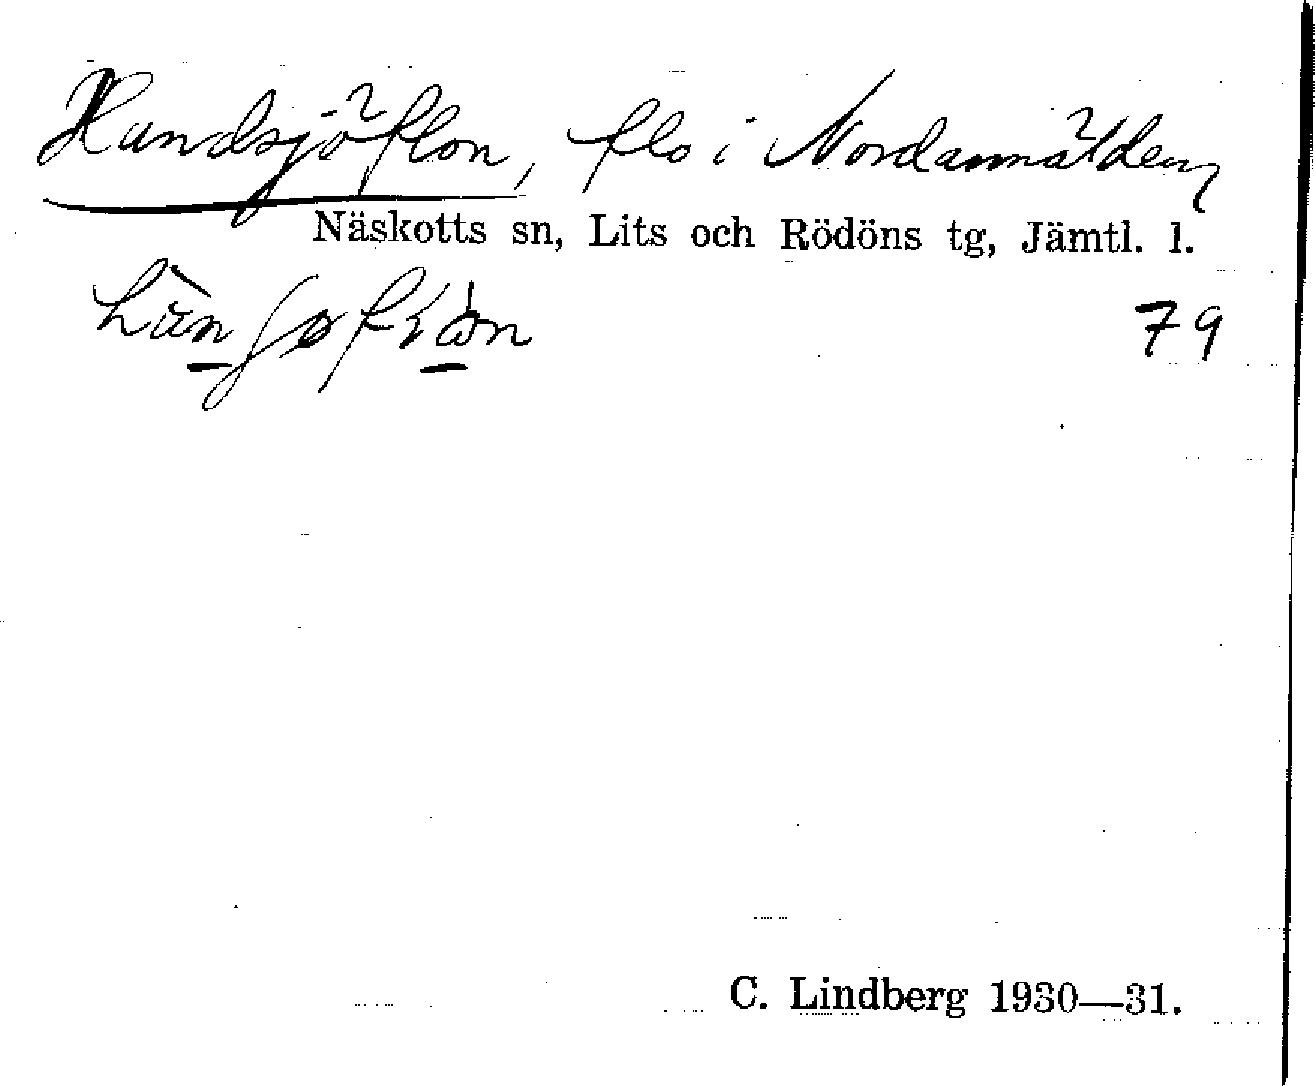 Hundsjöflon, flo i Nordannälden
Näskotts sn, Lits och Rödöns tg, Jämtl. l.
79
C. Lindberg 1930—31.